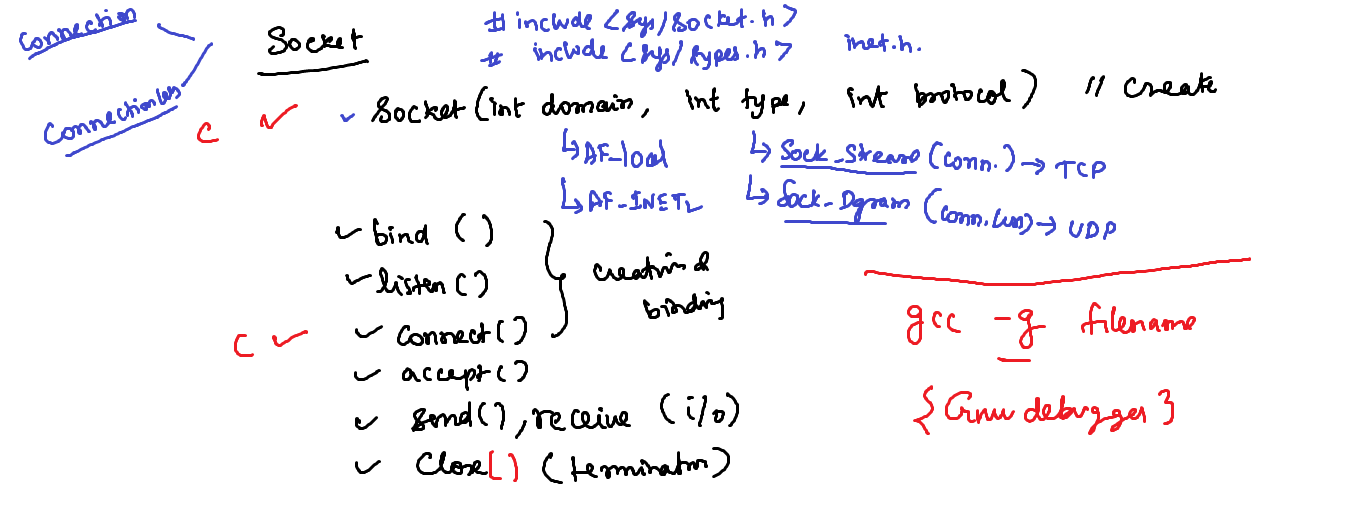 Connection
Socket
# include <sys/socket.h>
# include <sys/types.h> inet.h.
Connectionless
C ✓ ✓ Socket(int domain, int type, int protocol) // create
↳ AF_local ↳ Sock_Stream (conn.) → TCP
↳ AF_INET ↳ Sock_Dgram (conn.less) → UDP
✓ bind ()
✓ listen() creation & binding
C ✓ ✓ connect()
✓ accept()
✓ send(), receive (i/o)
✓ close() (termination)
gcc -g filename
{Gnu debugger}